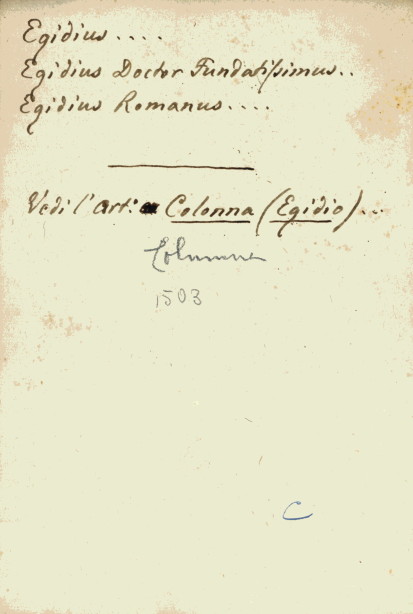 Egidius ....
Egidius Doctor Fundatissimus..
Egidius Romanus ....
Vedi l'art: Colonna (Egidio)...
Columna
1503
C